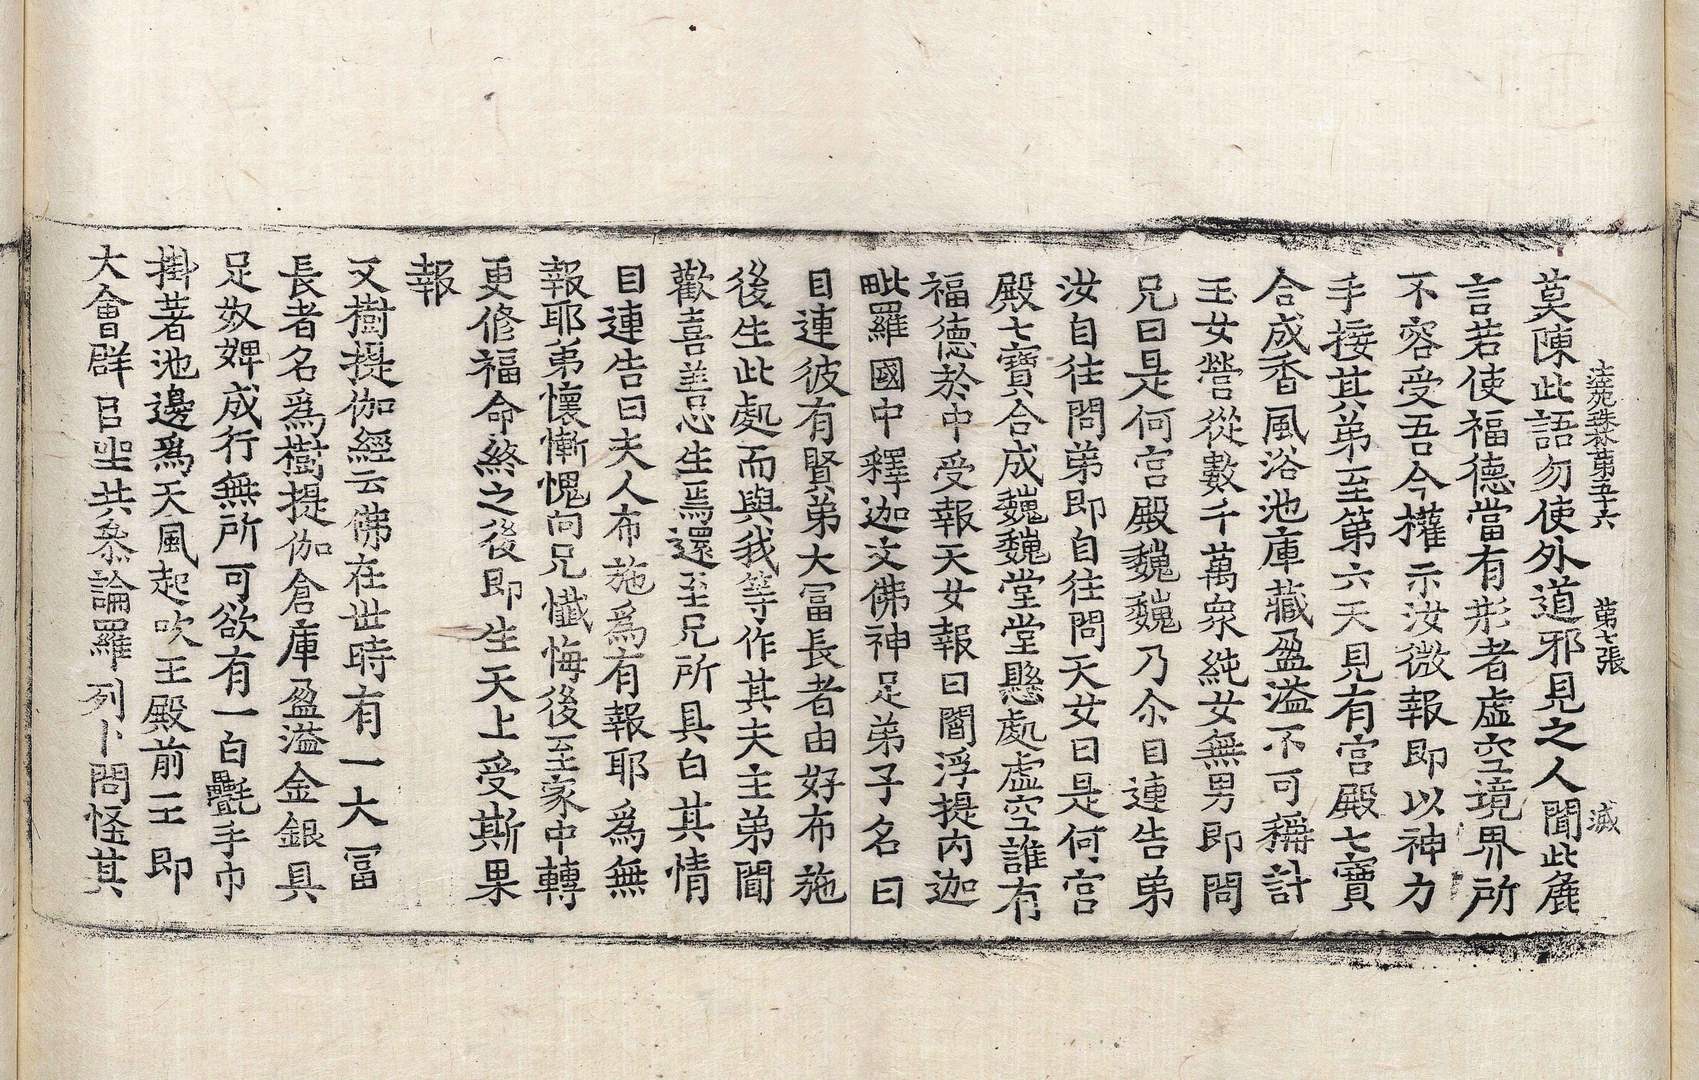 法苑珠林第五十六　第七張　滅
莫陳此語勿使外道邪見之人聞此麁
言若使福德當有形者虛空境界所
不容受吾今權示汝微報即以神力
手接其弟至第六天見有宮殿七寶
合成香風浴池庫藏盈溢不可稱計
玉女營從數千萬衆純女無男即問
兄曰是何宮殿巍巍乃尒目連告弟
汝自往問弟即自往問天女曰是何宮
殿七寶合成巍巍堂堂懸處虛空誰有
福德於中受報天女報曰閻浮提内迦
毗羅國中釋迦文佛神足弟子名曰
目連彼有賢弟大冨長者由好布施
後生此處而與我等作其夫主弟聞
歡喜善心生焉還至兄所具白其情
目連告曰夫人布施爲有報耶爲無
報耶弟懷慚愧向兄懺悔後至家中轉
更修福命終之後即生天上受斯果
報
又樹提伽經云佛在世時有一大冨
長者名爲樹提伽倉庫盈溢金銀具
足奴婢成行無所可欲有一白㲲手巾
掛著池邊爲天風起吹王殿前王即
大會群臣坐共叅論羅列卜問怪其